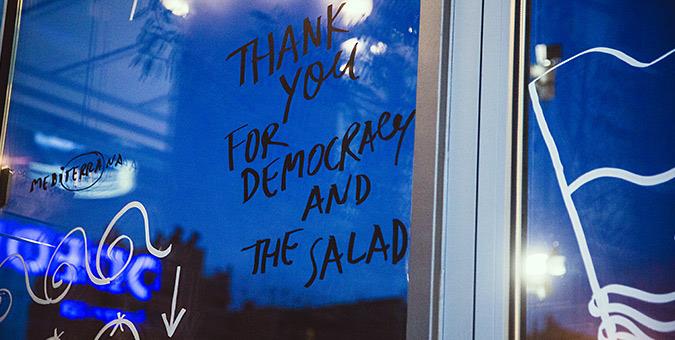 THANK
YOU
FOR
DEMOCRACY
AND
THE SALAD
MEDITERRANA